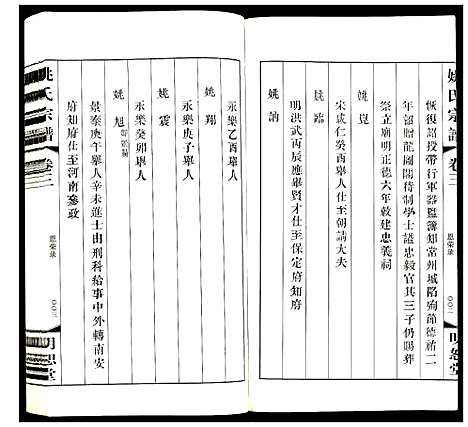 姚氏宗譜 卷三 恩榮录 〇〇二 明恕堂
恢復詔授帶行軍器監簿知常州城陷殉節德祐二
年韶贈龍圖閣待制學士謚忠毅官其二子仍賜葬
崇立廟明正德六年敕建忠義祠
姚
宋咸仁癸酉舉人仕至朝請大夫
姚
明洪武丙辰應舉賢才仕至保定府知府
姚訥
永樂乙酉舉人
姚翔
永樂庚子舉人
姚震
永樂癸卯舉人
姚旭
景泰庚午舉人辛未進士由刑科給事中外轉南安
府知府仕至河南參政
姚氏宗譜 卷三 恩榮录 〇〇三 明恕堂